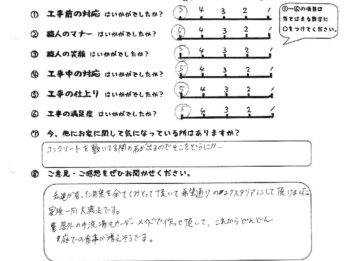 ① 工事前の対応 はいかがでしたか? 5 4 3 2 1
② 職人のマナー はいかがでしたか? 5 4 3 2 1
③ 職人の笑顔 はいかがでしたか? 5 4 3 2 1
④ 工事中の対応 はいかがでしたか? 5 4 3 2 1
⑤ 工事の仕上り はいかがでしたか? 5 4 3 2 1
⑥ 工事の満足度 はいかがでしたか? 5 4 3 2 1
①~⑥の項目は
当てはまる数字に
○をつけてください。
⑦ 今、他にお家に関して気になっている所はありますか?
コンクリートを敷いてる間の石が出るのでそこをどうにか…
⑧ ご意見・ご感想をぜひお聞かせください。
私達が言った要望を全てくみとって頂いて希望通りのエクスタリアにして頂け
家族一同大満足です。
オーダーメイドで作って頂して、これからどんどん
庭での食事が増えそうです。